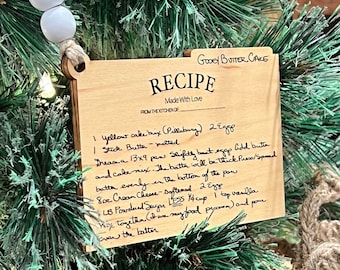 GOOEY BUTTER CAKE
RECIPE
Made With Love
FROM THE KITCHEN OF
1 yellow cake mix (Pillsbury) 2 Eggs
1 Stick Butter - melted
Grease a 13x9 pan Slightly beat eggs Add butter
and cake mix. The batter will be thick Press/Spread
batter evenly in the bottom of the pan
8oz Cream Cheese - softened 2 Eggs
LB Powdered Sugar 1/4 cup 1 tsp vanilla
Mix together (do in a food processor) and pour
over the batter